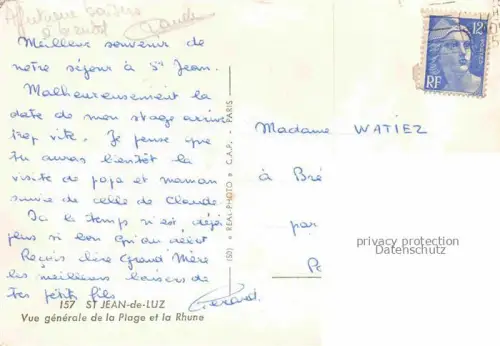 Affectueux baisers
à bientôt
Claude
Meilleur souvenir de
notre séjour à St Jean.
Malheureusement la
date de mon stage arrive
trop vite. Je pense que
tu auras bientôt la
visite de papa et maman
suivie de celle de Claude
Ici le temps n'est déjà
plus si bon qu'au début
Reçois chère Grand'Mère
les meilleurs baisers de
tes petits fils
Gérard.
157 ST JEAN-de-LUZ
Vue générale de la Plage et la Rhune
(50) « REAL-PHOTO » C.A.P. - PARIS
12F
RF
Madame WATIEZ
à Bré
par
privacy protection
Datenschutz